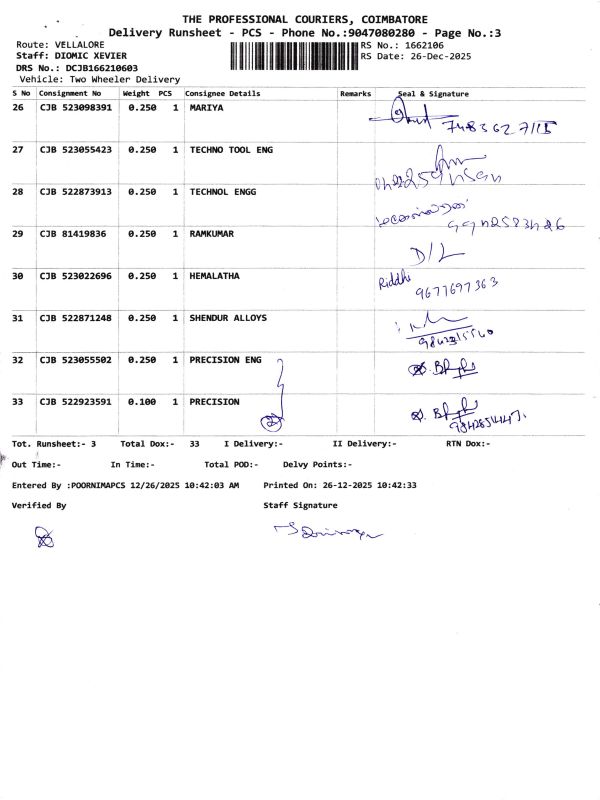 THE PROFESSIONAL COURIERS, COIMBATORE
Delivery Runsheet - PCS - Phone No.:9047080280 - Page No.:3
Route: VELLALORE RS No.: 1662106
Staff: DIOMIC XEVIER RS Date: 26-Dec-2025
DRS No.: DCJB166210603
Vehicle: Two Wheeler Delivery
S No Consignment No Weight PCS Consignee Details Remarks Seal & Signature
26 CJB 523098391 0.250 1 MARIYA
27 CJB 523055423 0.250 1 TECHNO TOOL ENG
28 CJB 522873913 0.250 1 TECHNOL ENGG
29 CJB 81419836 0.250 1 RAMKUMAR D/L
30 CJB 523022696 0.250 1 HEMALATHA Riddhi
9677697363
31 CJB 522871248 0.250 1 SHENDUR ALLOYS
32 CJB 523055502 0.250 1 PRECISION ENG
33 CJB 522923591 0.100 1 PRECISION
Tot. Runsheet:- 3 Total Dox:- 33 I Delivery:- II Delivery:- RTN Dox:-
Out Time:- In Time:- Total POD:- Delvy Points:-
Entered By :POORNIMAPCS 12/26/2025 10:42:03 AM Printed On: 26-12-2025 10:42:33
Verified By Staff Signature